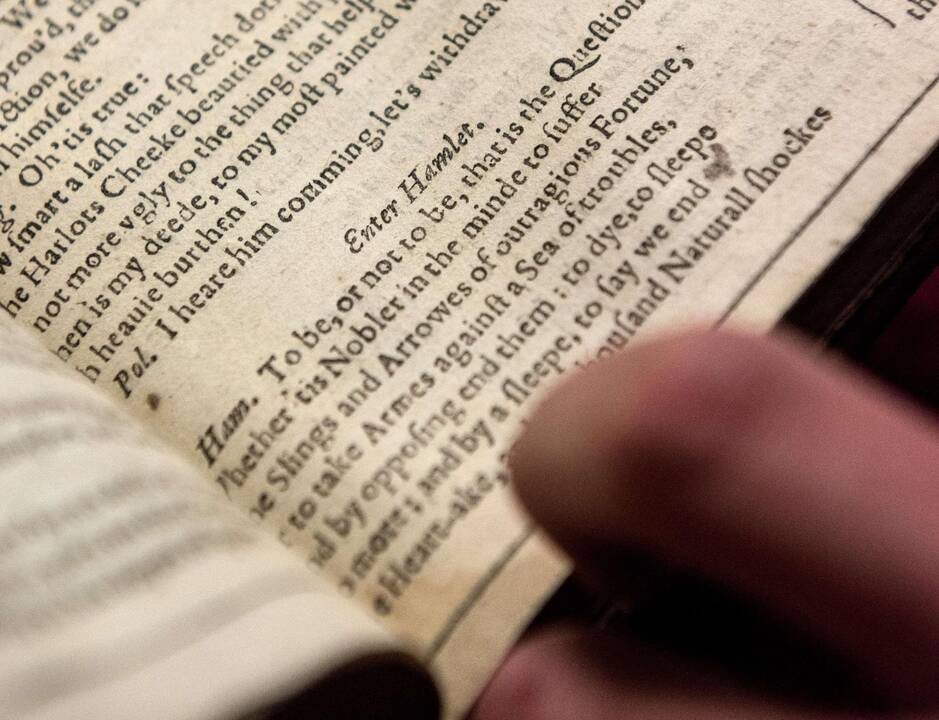 We
prou'd, th
ction, we do
himselfe.
g. Oh 'tis true:
w ſmart a laſh that ſpeech dot
he Harlots Cheeke beautied with
not more vgly to the thing that help
hen is my deede, to my moſt painted w
h heauie burthen!
Pol. I heare him comming, let's withdra
Enter Hamlet.
Ham. To be, or not to be, that is the Queſtion
Whether 'tis Nobler in the minde to ſuffer
e Slings and Arrowes of outragious Fortune,
to take Armes againſt a Sea of troubles,
nd by oppoſing end them: to dye, to ſleepe
o more; and by a ſleepe, to ſay we end
e Heart-ake, houſand Naturall ſhockes
th